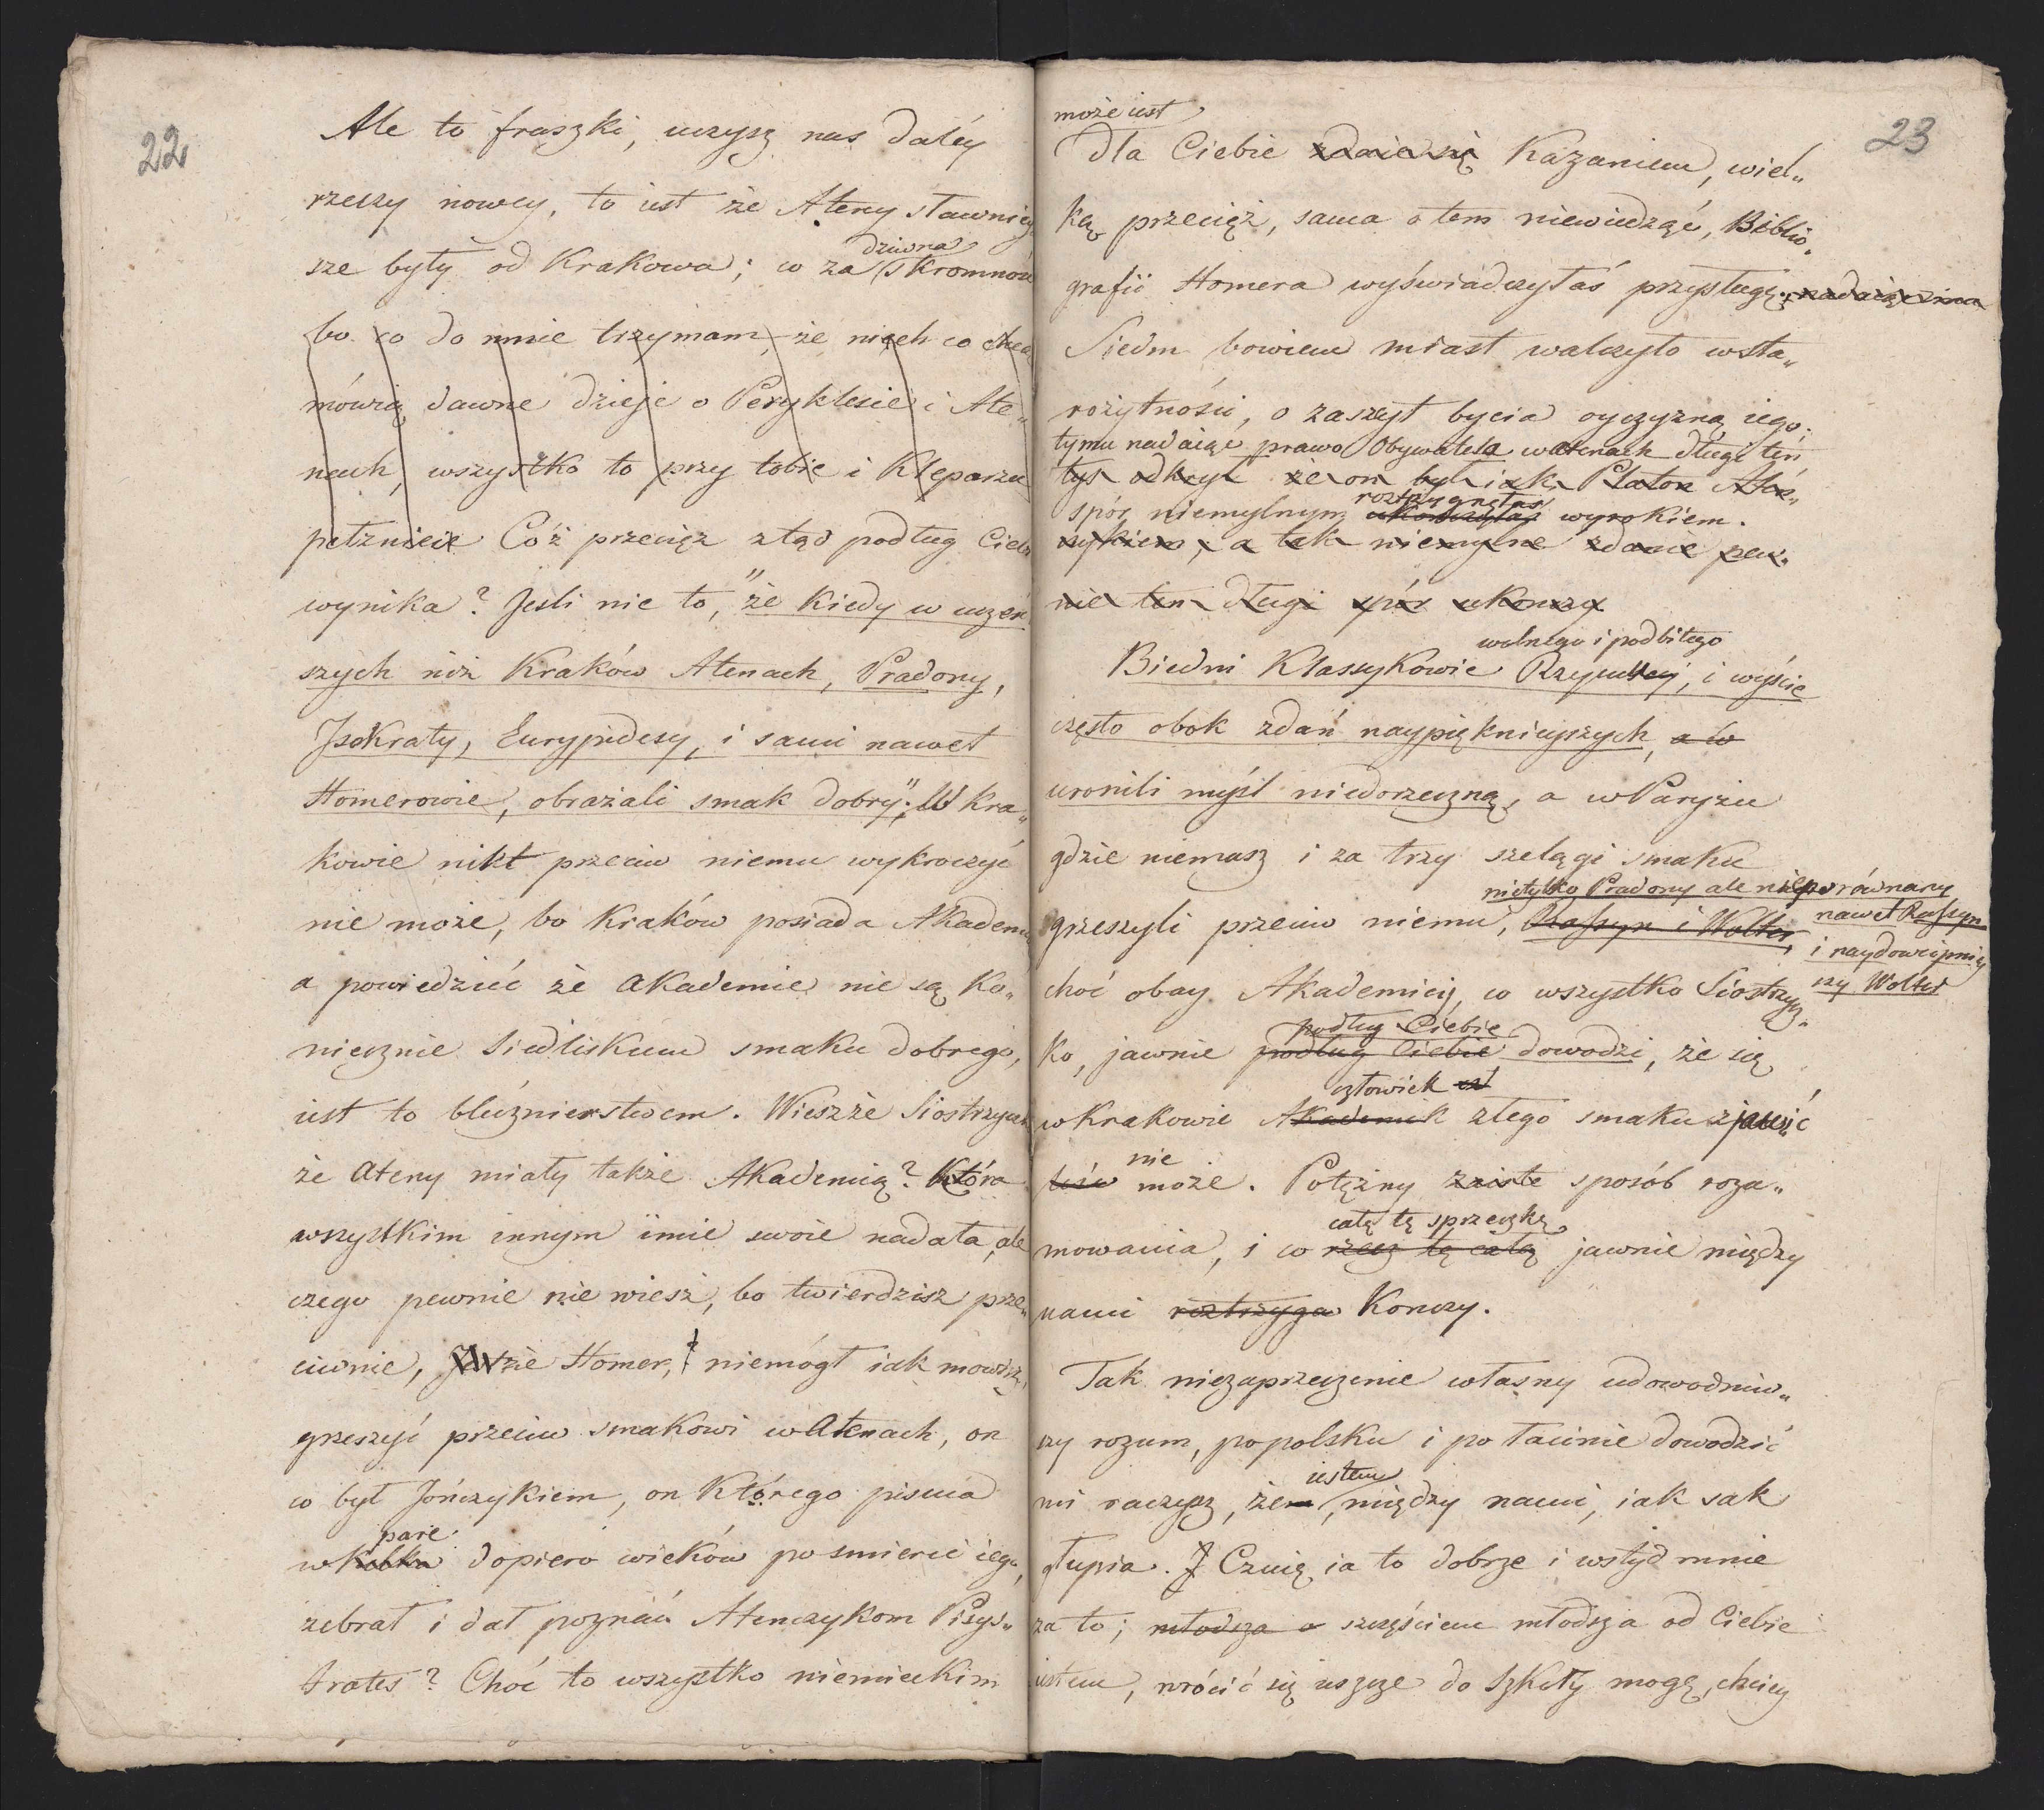 22
Ale to fraszki, uczysz nas daléy
rzeczy nowey, to iest że Ateny sławniey
dziwna
sze były od Krakowa; co za skromność
bo co do mnie trzymam, że niech co chcą
mówią dawne dzieje o Peryklesie i Ate„
nach, wszystko to przy tobie i Kleparzu
pełznieie Cóż przecięż ztąd podług Ciebie
wynika? Jeśli nie to, "że kiedy w uczeń
szych niż Kraków Atenach, Pradony,
Jzokraty, Eurypidesy, i sami nawet
Homerowie, obrażali smak dobry"; W Kra„
kowie nikt przeciw niemu wykroczyć
nie może, bo Kraków posiada Akademią
a powiedzieć że akademie nie są ko„
niecznie Siedliskiem smaku dobrego,
iest to bluźnierstwem. Wieszże Siostrzyczko
że ateny miały także Akademią? Która
wszystkim innym imie swoie nadała, ale
czego pewnie nie wiesz, bo twierdzisz prze„
ciwnie, że Homer, niemógł iak mówisz,
grzeszyć przeciw smakowi w atenach, on
co był Jończykiem, on którego pisma
parę
w kilka dopiero wieków po śmierci iego,
zebrał i dał poznać Atenczykom Pizys„
trates? Choć to wszystko niemieckim
23
może iest
dla Ciebie zdaie się Kazaniem, wiel„
ką przecięż, sama o tem niewiedząć, Biblio„
grafii Homera wyświadczyłaś przysługę,
Siedm bowiem miast walczyło w sta„
rożytności, o zaszczyt bycia oyczyzną iego.
tymu nadaiąc prawo Obywatela w atenach długi ten
tyś odkrył że on był iak Platon Ateń„
spór niemylnym roztrzygnęłaś ukończyłaś wyrokiem.
czykiem, a tak niemylne zdanie pew„
nie ten długi spór ukonczy
wolnego i podbitego
Biedni Klassykowie Rzymscy, i wyście
często obok zdań naypięknieyszych, a w
uronili myśl niedorzeczną, a w Paryżu
gdzie niemasz i za trzy szelągi smaku
nietylko Pradony ale nieporównany
grzeszyli przeciw niemu, Rassyn i Wolter, nawet Rassyn
i naydowcipniey
choć obay Akademicy, co wszystko Siostrzycz„ szy Wolter
podług Ciebie
ko, jawnie podług Ciebie dowodzi, że się
człowiek
w Krakowie Akademik złego smaku zjawić
nie
może. Potężny zaiste sposób rozu„
całą tę sprzeczkę
mowania, i co rzecz tę całą jawnie między
nami roztrzyga Konczy.
Tak niezaprzeczenie własny udowodniw„
szy rozum, po polsku i po łacinie dowodzić
iestem
mi raczysz, żem, między nami, iak sak
głupia. J Czuię ia to dobrze i wstyd mnie
za to; młodsza o szczęściem młodsza od Ciebie
iestem, wrócić się ieszcze do Szkoły mogę, chciey